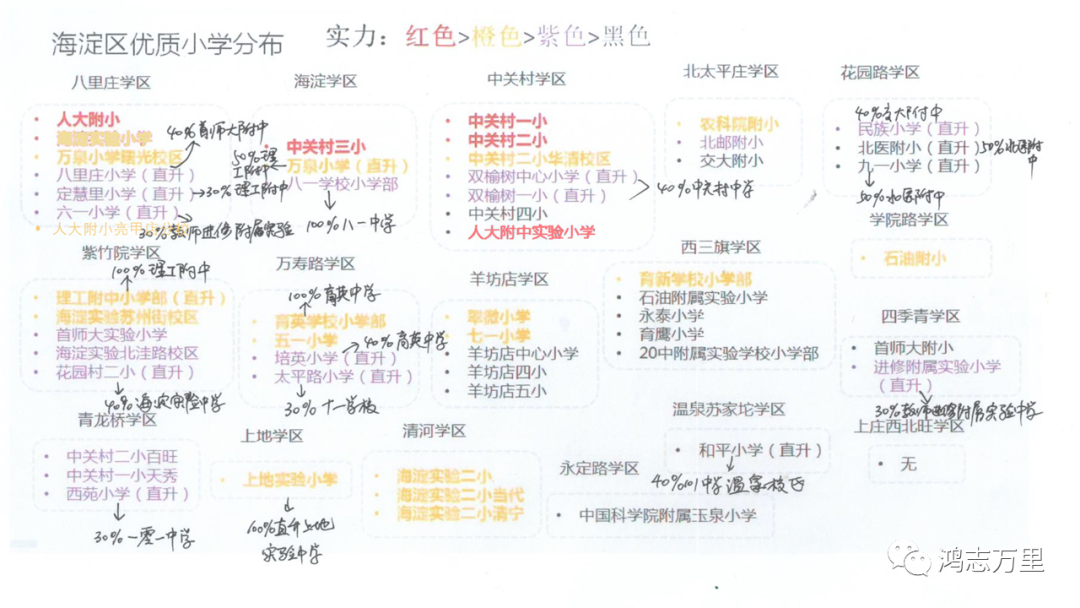 海淀区优质小学分布
实力：红色>橙色>紫色>黑色
八里庄学区
• 人大附小
• 海淀实验小学
40%首师大附中
• 万泉小学曙光校区
• 八里庄小学（直升）
• 定慧里小学（直升）
30%理工附中
• 六一小学（直升）
30%教师进修附属实验
• 人大附小亮甲店
海淀学区
• 中关村三小
50%理工附中
• 万泉小学（直升）
• 八一学校小学部
100%八一中学
中关村学区
• 中关村一小
• 中关村二小
• 中关村二小华清校区
• 双榆树中心小学（直升）
• 双榆树一小（直升）
40%中关村中学
• 中关村四小
• 人大附中实验小学
北太平庄学区
• 农科院附小
• 北邮附小
• 交大附小
花园路学区
40%交大附中
• 民族小学（直升）
• 北医附小（直升）
50%北医附中
• 九一小学（直升）
50%北医附中
学院路学区
• 石油附小
紫竹院学区
100%理工附中
• 理工附中小学部（直升）
• 海淀实验苏州街校区
• 首师大实验小学
• 海淀实验北洼路校区
• 花园村二小（直升）
40%海淀实验中学
万寿路学区
100%育英中学
• 育英学校小学部
• 五一小学
40%育英中学
• 培英小学（直升）
• 太平路小学（直升）
30%十一学校
羊坊店学区
• 翠微小学
• 七一小学
• 羊坊店中心小学
• 羊坊店四小
• 羊坊店五小
西三旗学区
• 育新学校小学部
• 石油附属实验小学
• 永泰小学
• 育鹰小学
• 20中附属实验学校小学部
四季青学区
• 首师大附小
• 进修附属实验小学
（直升）
30%教师进修附属实验中学
青龙桥学区
• 中关村二小百旺
• 中关村一小天秀
• 西苑小学（直升）
30%一零一中学
上地学区
• 上地实验小学
100%直升上地
实验中学
清河学区
• 海淀实验二小
• 海淀实验二小当代
• 海淀实验二小清宁
温泉苏家坨学区
• 和平小学（直升）
40%101中学温泉校区
永定路学区
• 中国科学院附属玉泉小学
上庄西北旺学区
• 无
鸿志万里